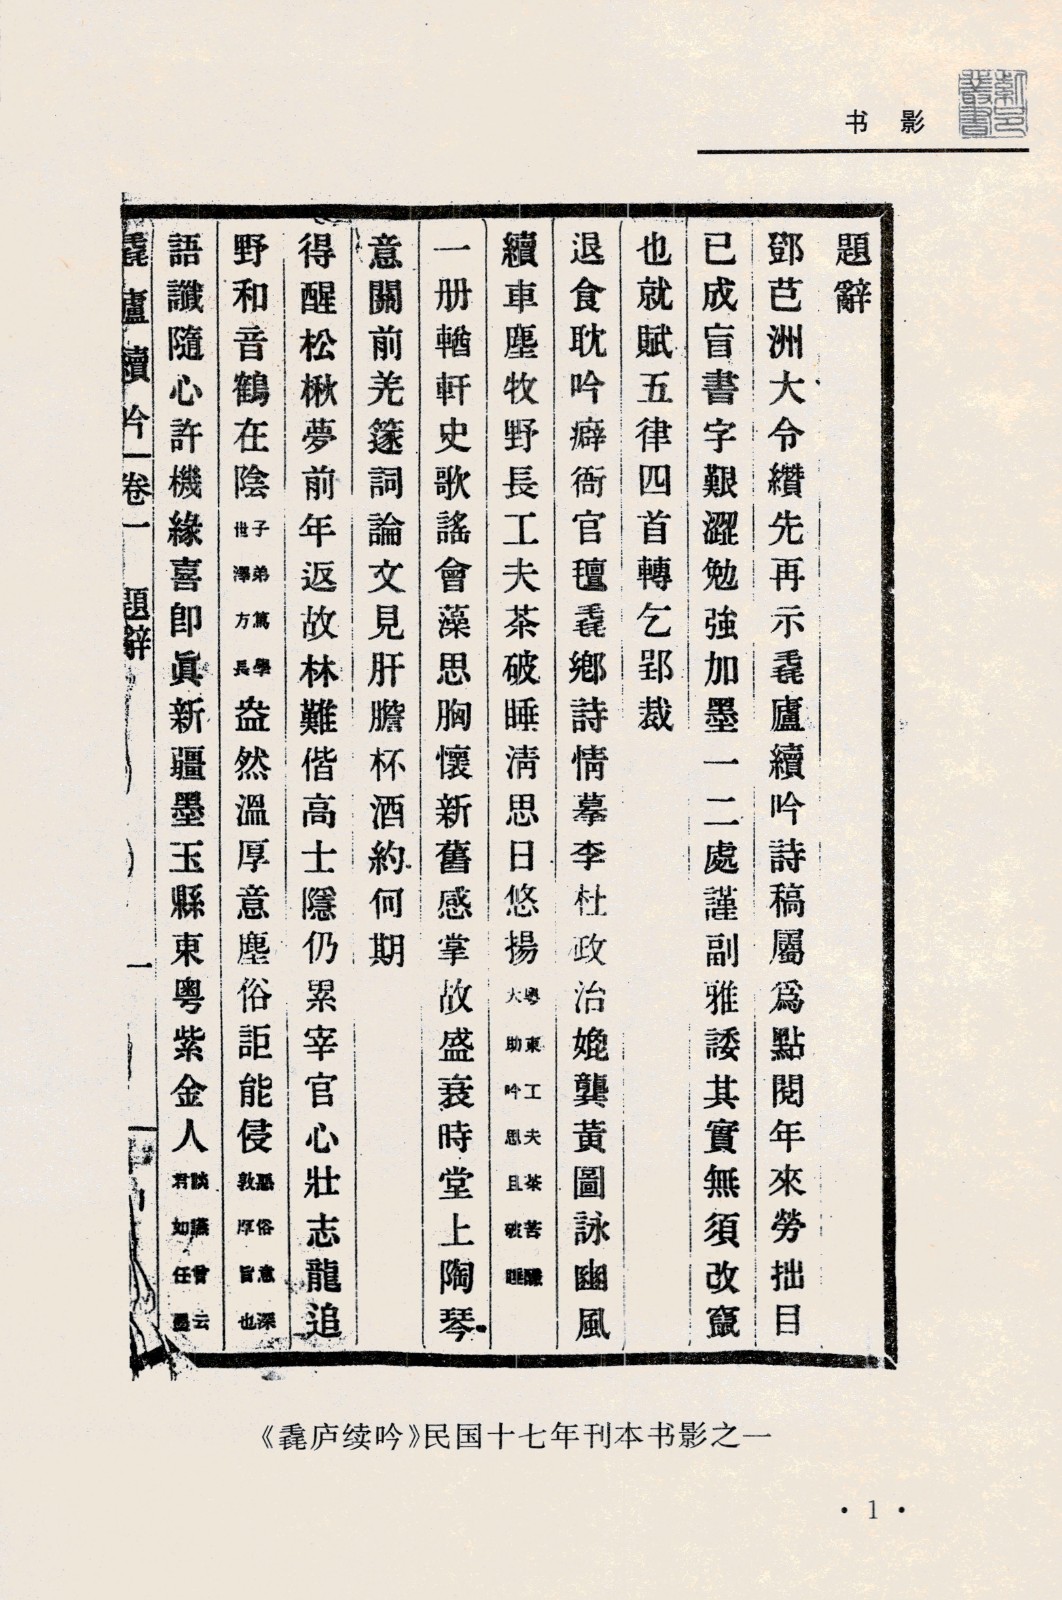 书影
紫邑叢書
題辭
鄧芑洲大令纘先再示毳廬續吟詩稿屬爲點閱年來勞拙目
已成盲書字艱澀勉強加墨一二處謹副雅諉其實無須改竄
也就賦五律四首轉乞郢裁
退食耽吟癖衙官氊毳鄉詩情摹李杜政治媲龔黃圖詠豳風
續車塵牧野長工夫茶破睡淸思日悠揚粵東工夫茶苦釅大助吟思且破睡
一册輶軒史歌謠會藻思胸懷新舊感掌故盛衰時堂上陶琴
意關前羌篴詞論文見肝膽杯酒約何期
得醒松楸夢前年返故林難偕高士隱仍累宰官心壯志龍追
野和音鶴在陰子弟篤學世澤方長盎然溫厚意塵俗詎能侵惡俗意深敦厚旨也
語讖隨心許機緣喜卽眞新疆墨玉縣東粵紫金人談讌曾云君如任墨
毳廬續吟 卷一 題辭 一
《毳庐续吟》民国十七年刊本书影之一
· 1 ·